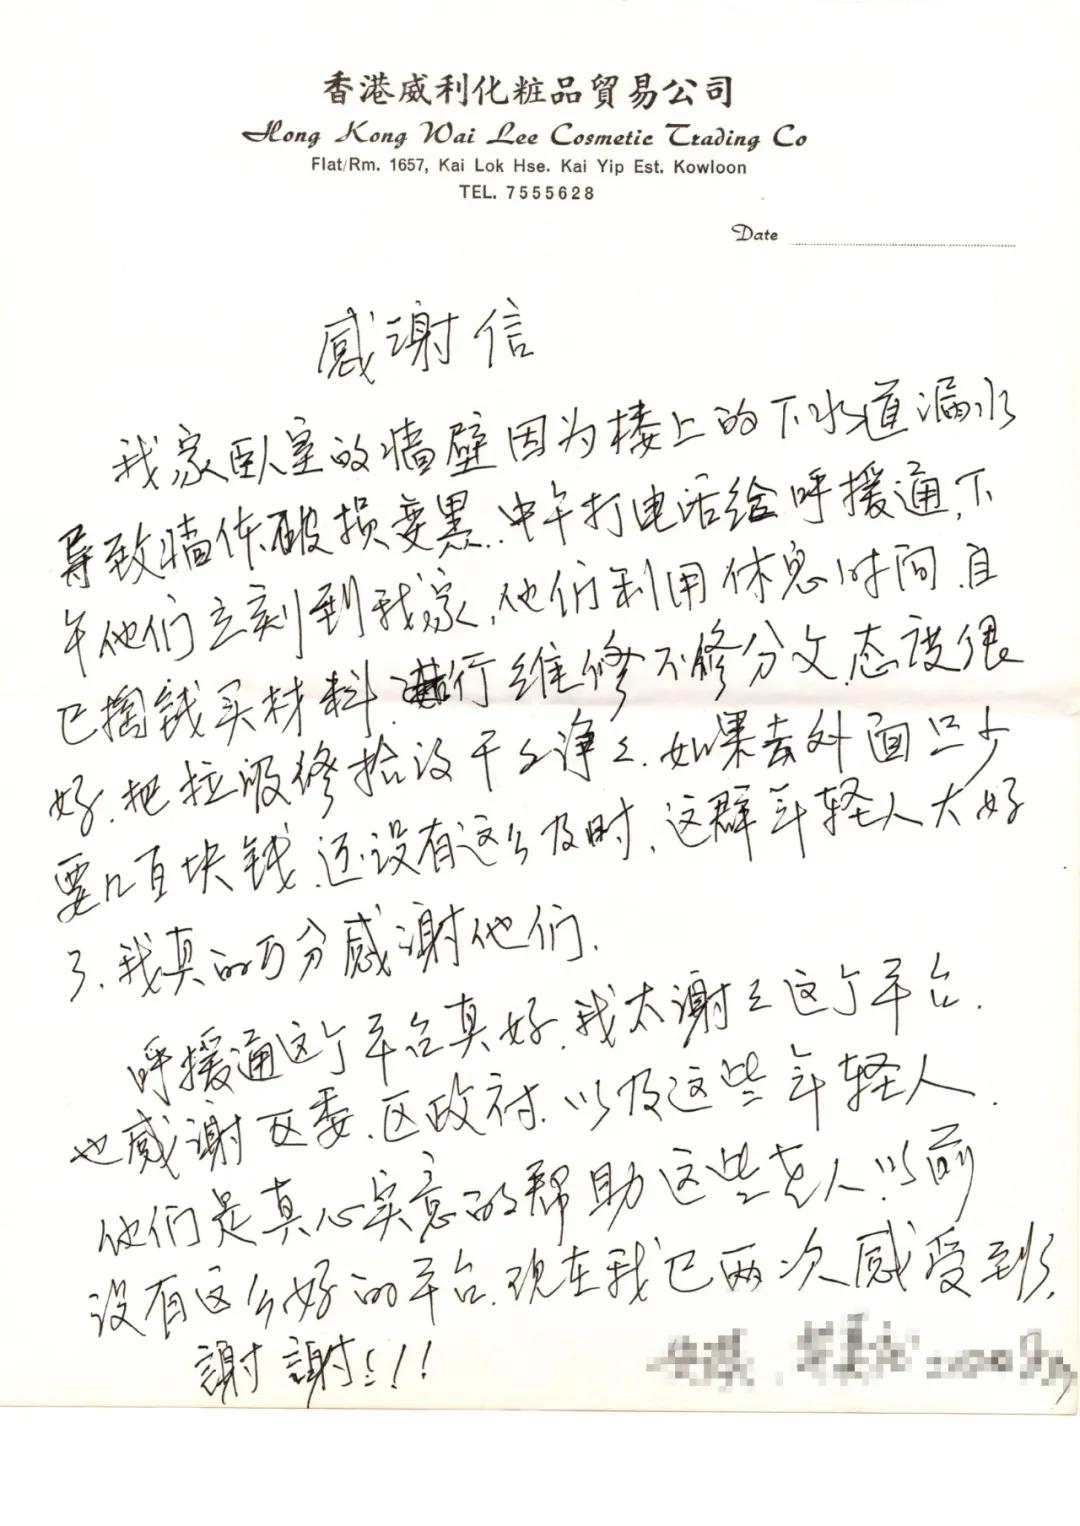 香港威利化粧品貿易公司
Hong Kong Wai Lee Cosmetic Trading Co
Flat/Rm. 1657, Kai Lok Hse. Kai Yip Est. Kowloon
TEL. 7555628
Date
感谢信
我家卧室的墙壁因为楼上的下水道漏水
导致墙体破损变黑.中午打电话给呼援通,下
午他们立刻到我家,他们利用休息时间.自
己掏钱买材料.进行维修不修分文.态度很
好.把垃圾修拾没干乙净乙.如果去外面只少
要几百块钱.还没有这么及时.这群年轻人太好
了.我真的万分感谢他们.
呼援通这个平台真好.我太谢乙这个平台.
也感谢区委.区政府.以及这些年轻人.
他们是真心实意的帮助这些老人.以前
没有这么好的平台.现在我已两次感受到了.
謝謝!!!